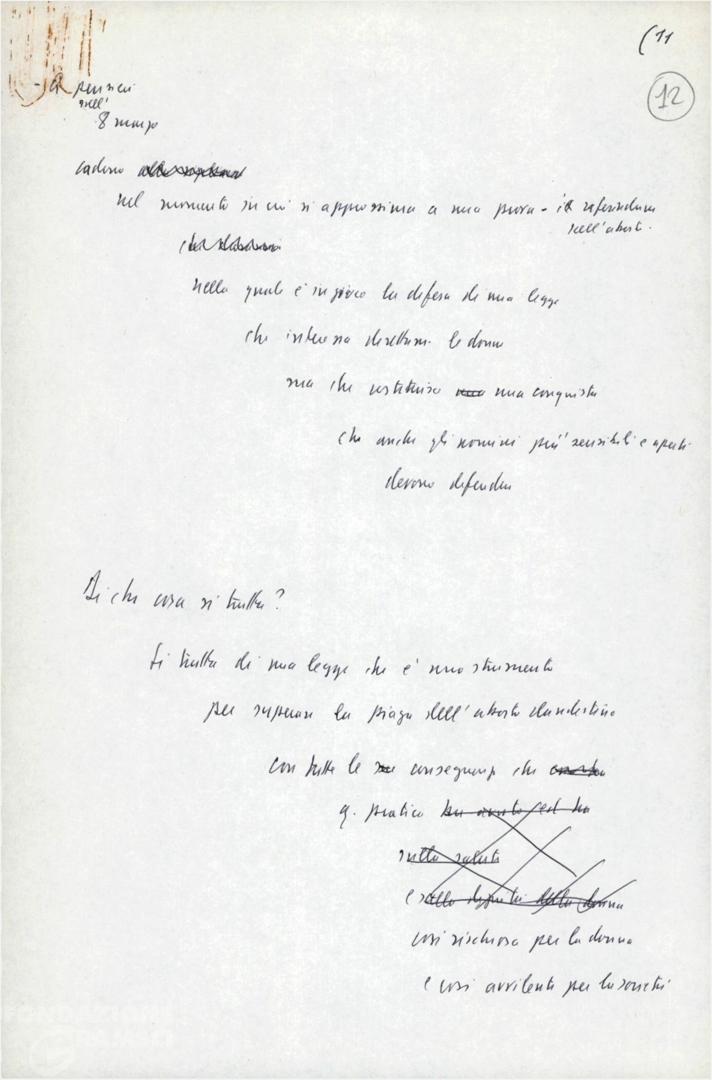 (11
12
- Q pensieri
dell'
8 marzo
cadono
nel momento in cui si approssima a una prova - il referendum
sull'aborto.
nella quale è in gioco la difesa di una legge
che interessa direttam. le donne
ma che costituisce una conquista
che anche gli uomini più sensibili e aperti
devono difendere
Di che cosa si tratta?
Si tratta di una legge che è uno strumento
per superare la piaga dell'aborto clandestino
con tutte le conseguenze che
q. pratica ha avuto ed ha
sulla salute
e sulla dignità della donna
così rischiosa per la donna
e così avvilente per la società
FONDAZIONE
GRAMSCI